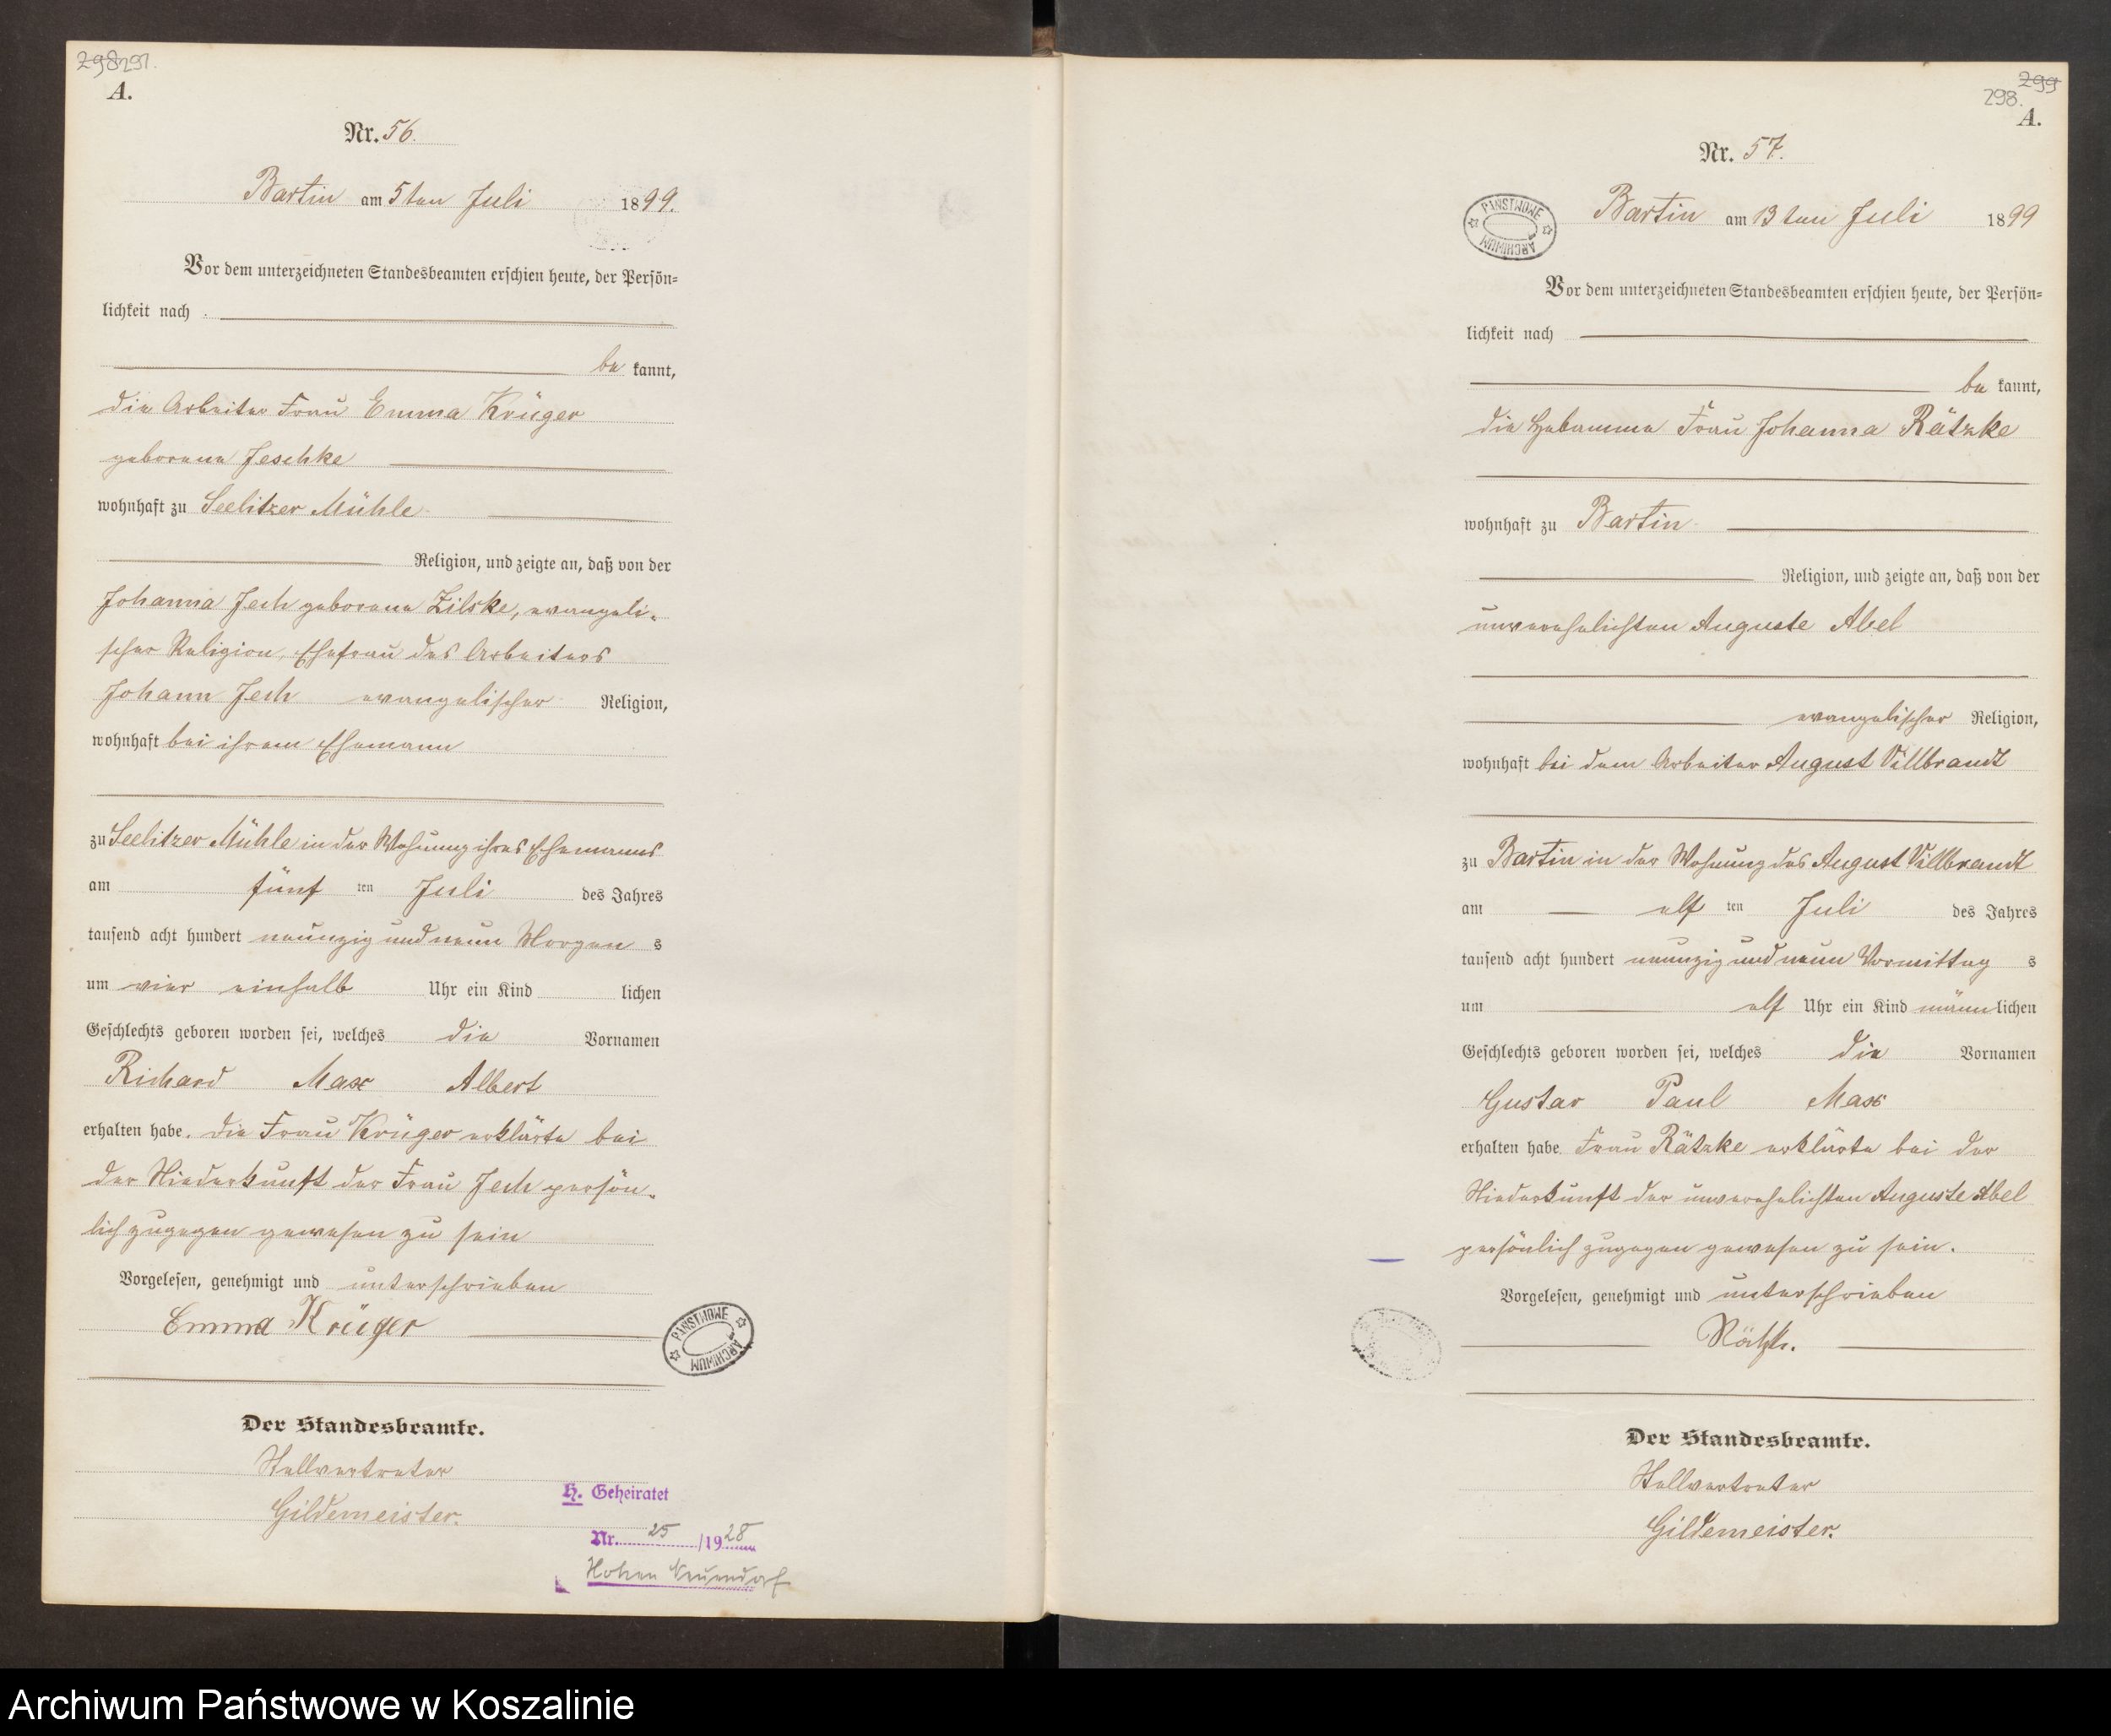 298 297.
A.
Nr. 56.
Bartin am 5ten Juli 1899.
Vor dem unterzeichneten Standesbeamten erschien heute, der Persön=
lichkeit nach
be kannt,
die Arbeiter Frau Emma Krüger
geborene Jeschke
wohnhaft zu Seelitzer Mühle
Religion, und zeigte an, daß von der
Johanna Jech geborene Zilske, evangeli-
scher Religion, Ehefrau des Arbeiters
Johann Jech evangelischer Religion,
wohnhaft bei ihrem Ehemann
zu Seelitzer Mühle in der Wohnung ihres Ehemanns
am fünf ten Juli des Jahres
tausend acht hundert neunzig und neun Morgen s
um vier einhalb Uhr ein Kind lichen
Geschlechts geboren worden sei, welches die Vornamen
Richard Max Albert
erhalten habe. die Frau Krüger erklärte bei
der Niederkunft der Frau Jech persön-
lich zugegen gewesen zu sein
Vorgelesen, genehmigt und unterschrieben
Emma Krüger
PAŃSTWOWE ARCHIWUM
Der Standesbeamte.
Stellvertreter
Gildemeister.
H. Geheiratet
Nr. 25 /1928
Hohen Neuendorf
299
298.
A.
Nr. 57.
PAŃSTWOWE ARCHIWUM
Bartin am 13ten Juli 1899
Vor dem unterzeichneten Standesbeamten erschien heute, der Persön=
lichkeit nach
be kannt,
die Hebamme Frau Johanna Rätzke
wohnhaft zu Bartin
Religion, und zeigte an, daß von der
unverehelichten Auguste Abel
evangelischer Religion,
wohnhaft bei dem Arbeiter August Villbrandt
zu Bartin in der Wohnung des August Villbrandt
am elf ten Juli des Jahres
tausend acht hundert neunzig und neun Vormittag s
um elf Uhr ein Kind männlichen
Geschlechts geboren worden sei, welches die Vornamen
Gustav Paul Max
erhalten habe. Frau Rätzke erklärte bei der
Niederkunft der unverehelichten Auguste Abel
persönlich zugegen gewesen zu sein.
Vorgelesen, genehmigt und unterschrieben
Rätzke.
Der Standesbeamte.
Stellvertreter
Gildemeister.
Archiwum Państwowe w Koszalinie